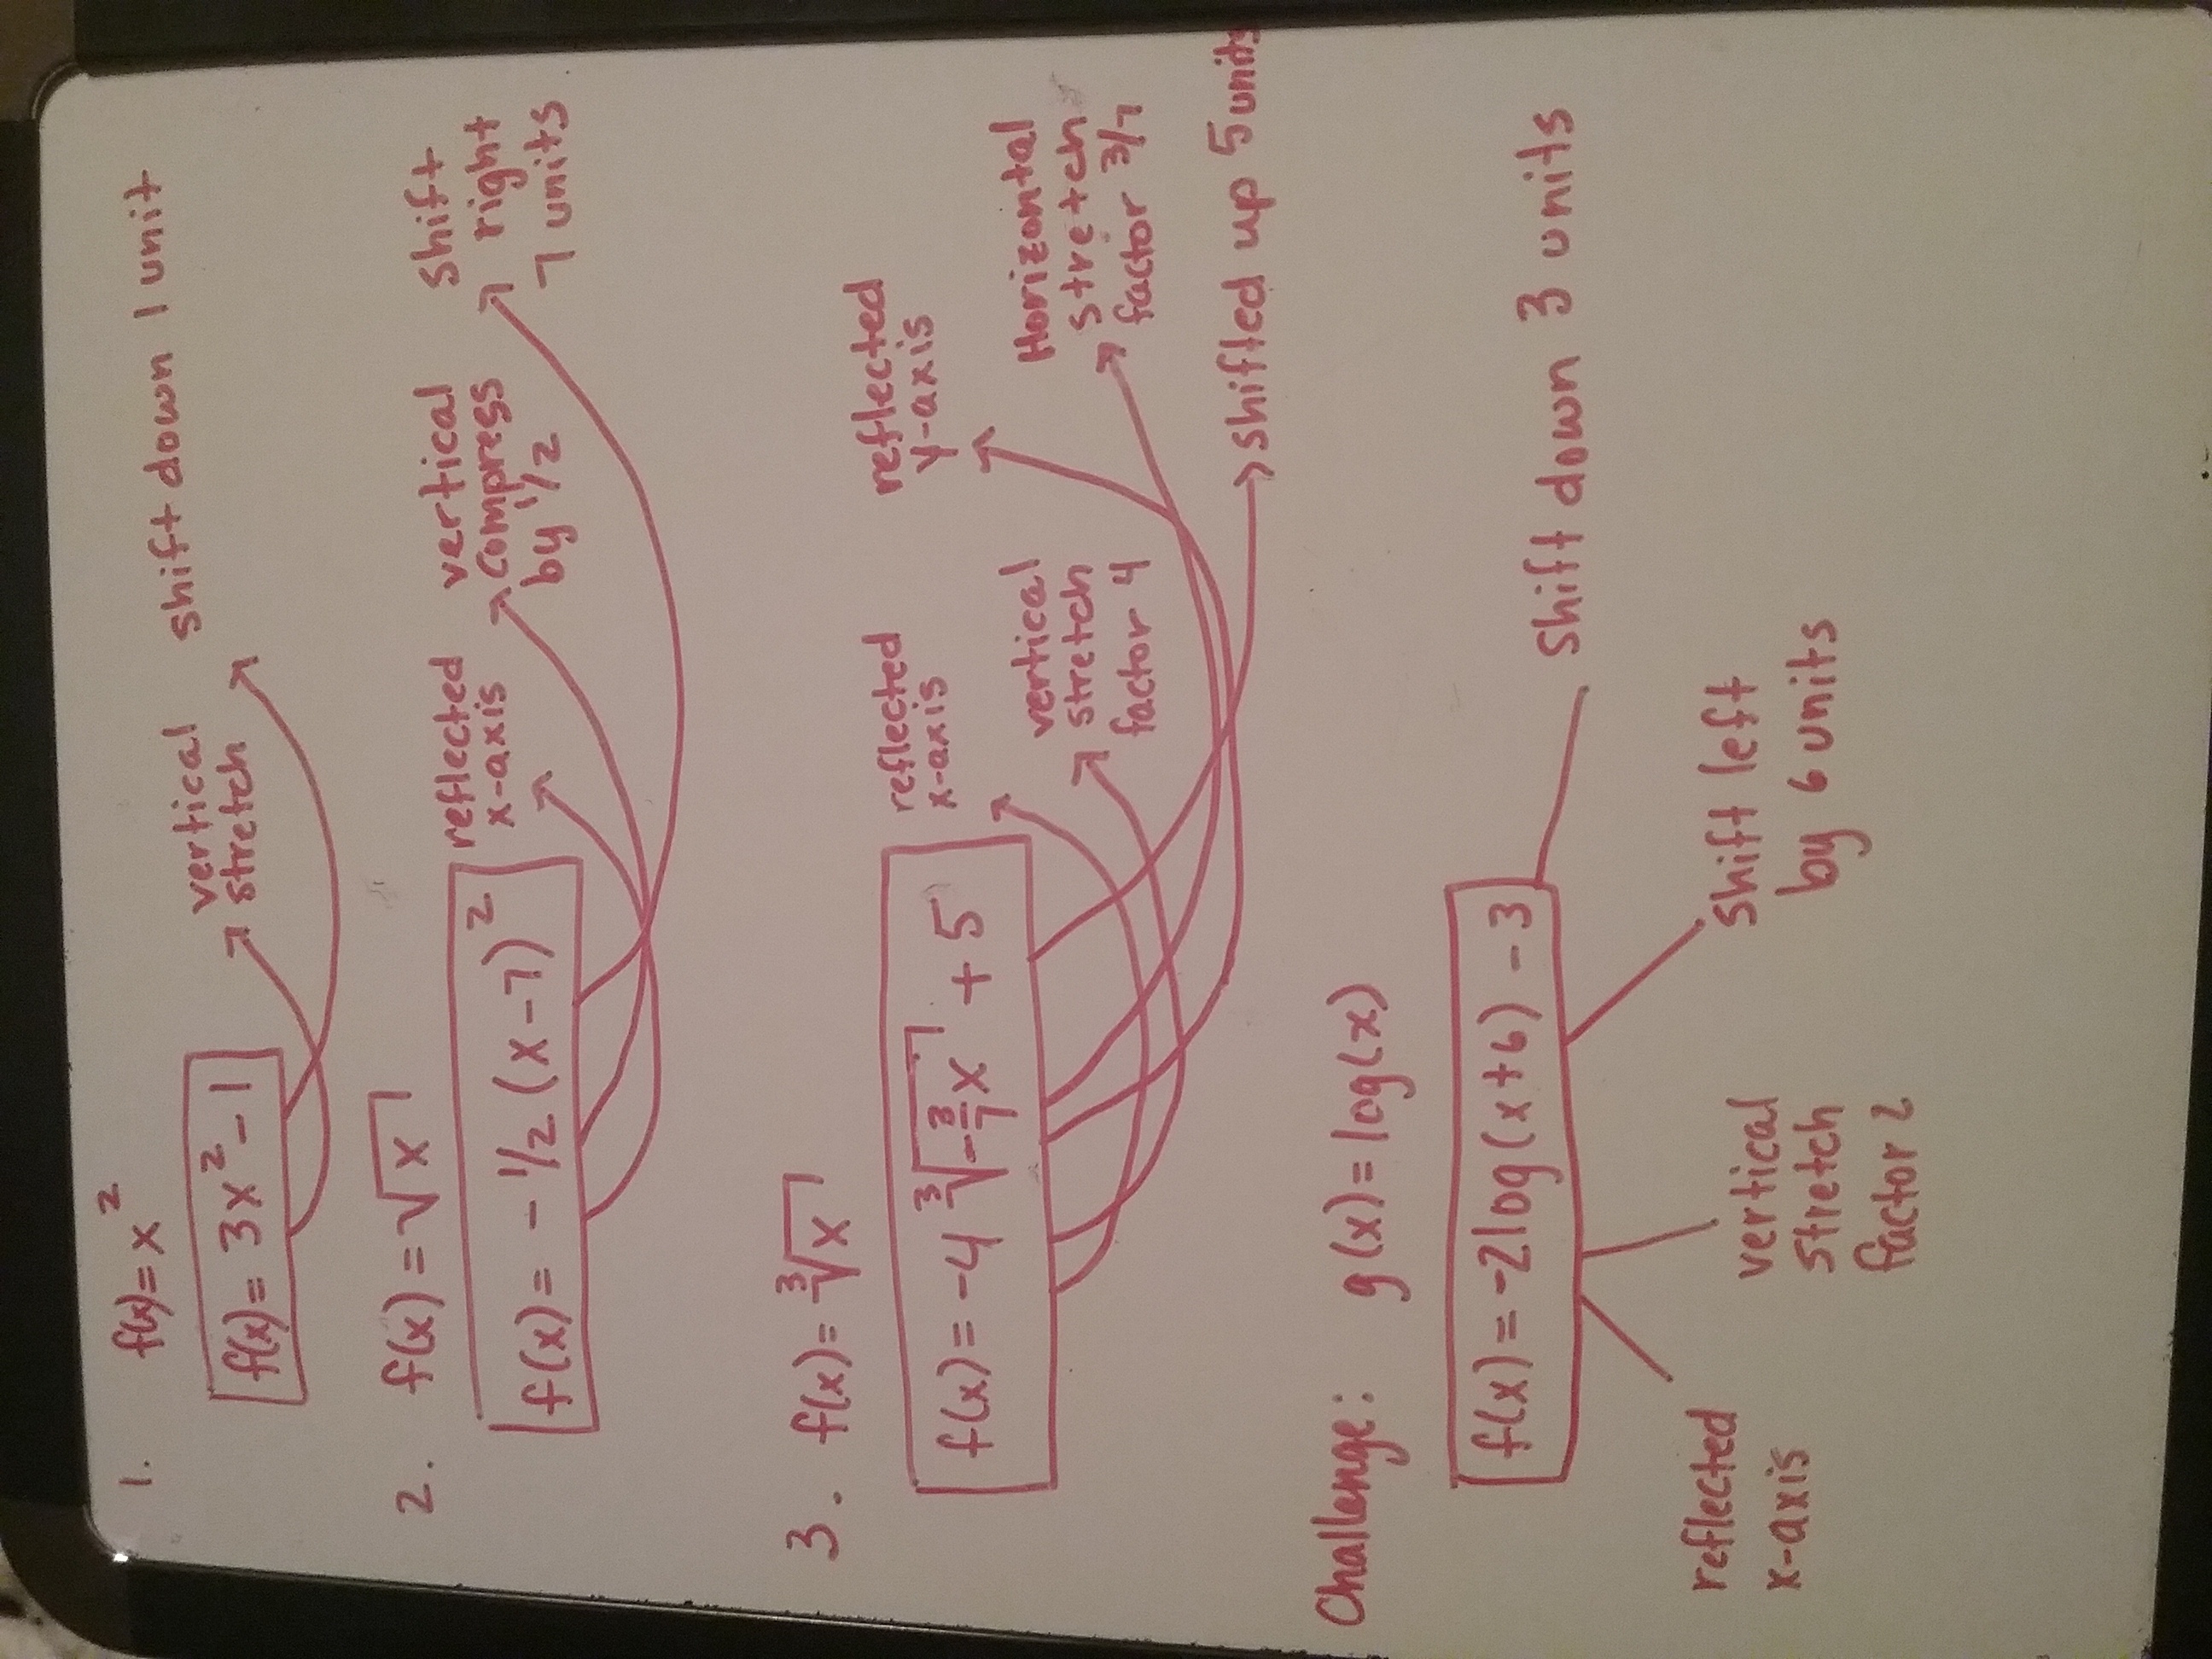 1. f(x) = x²
vertical
stretch
shift down 1 unit
f(x) = 3x² - 1
2. f(x) = √x
reflected
x-axis
vertical
compress
by 1/2
shift
right
7 units
f(x) = - 1/2 (x - 7)²
3. f(x) = ∛x
reflected
x-axis
reflected
y-axis
f(x) = -4 ∛(-3/7 x) + 5
vertical
stretch
factor 4
Horizontal
stretch
factor 3/7
shifted up 5 units
Challenge: g(x) = log(x)
f(x) = -2log(x+6) - 3
shift down 3 units
reflected
x-axis
vertical
stretch
factor 2
shift left
by 6 units